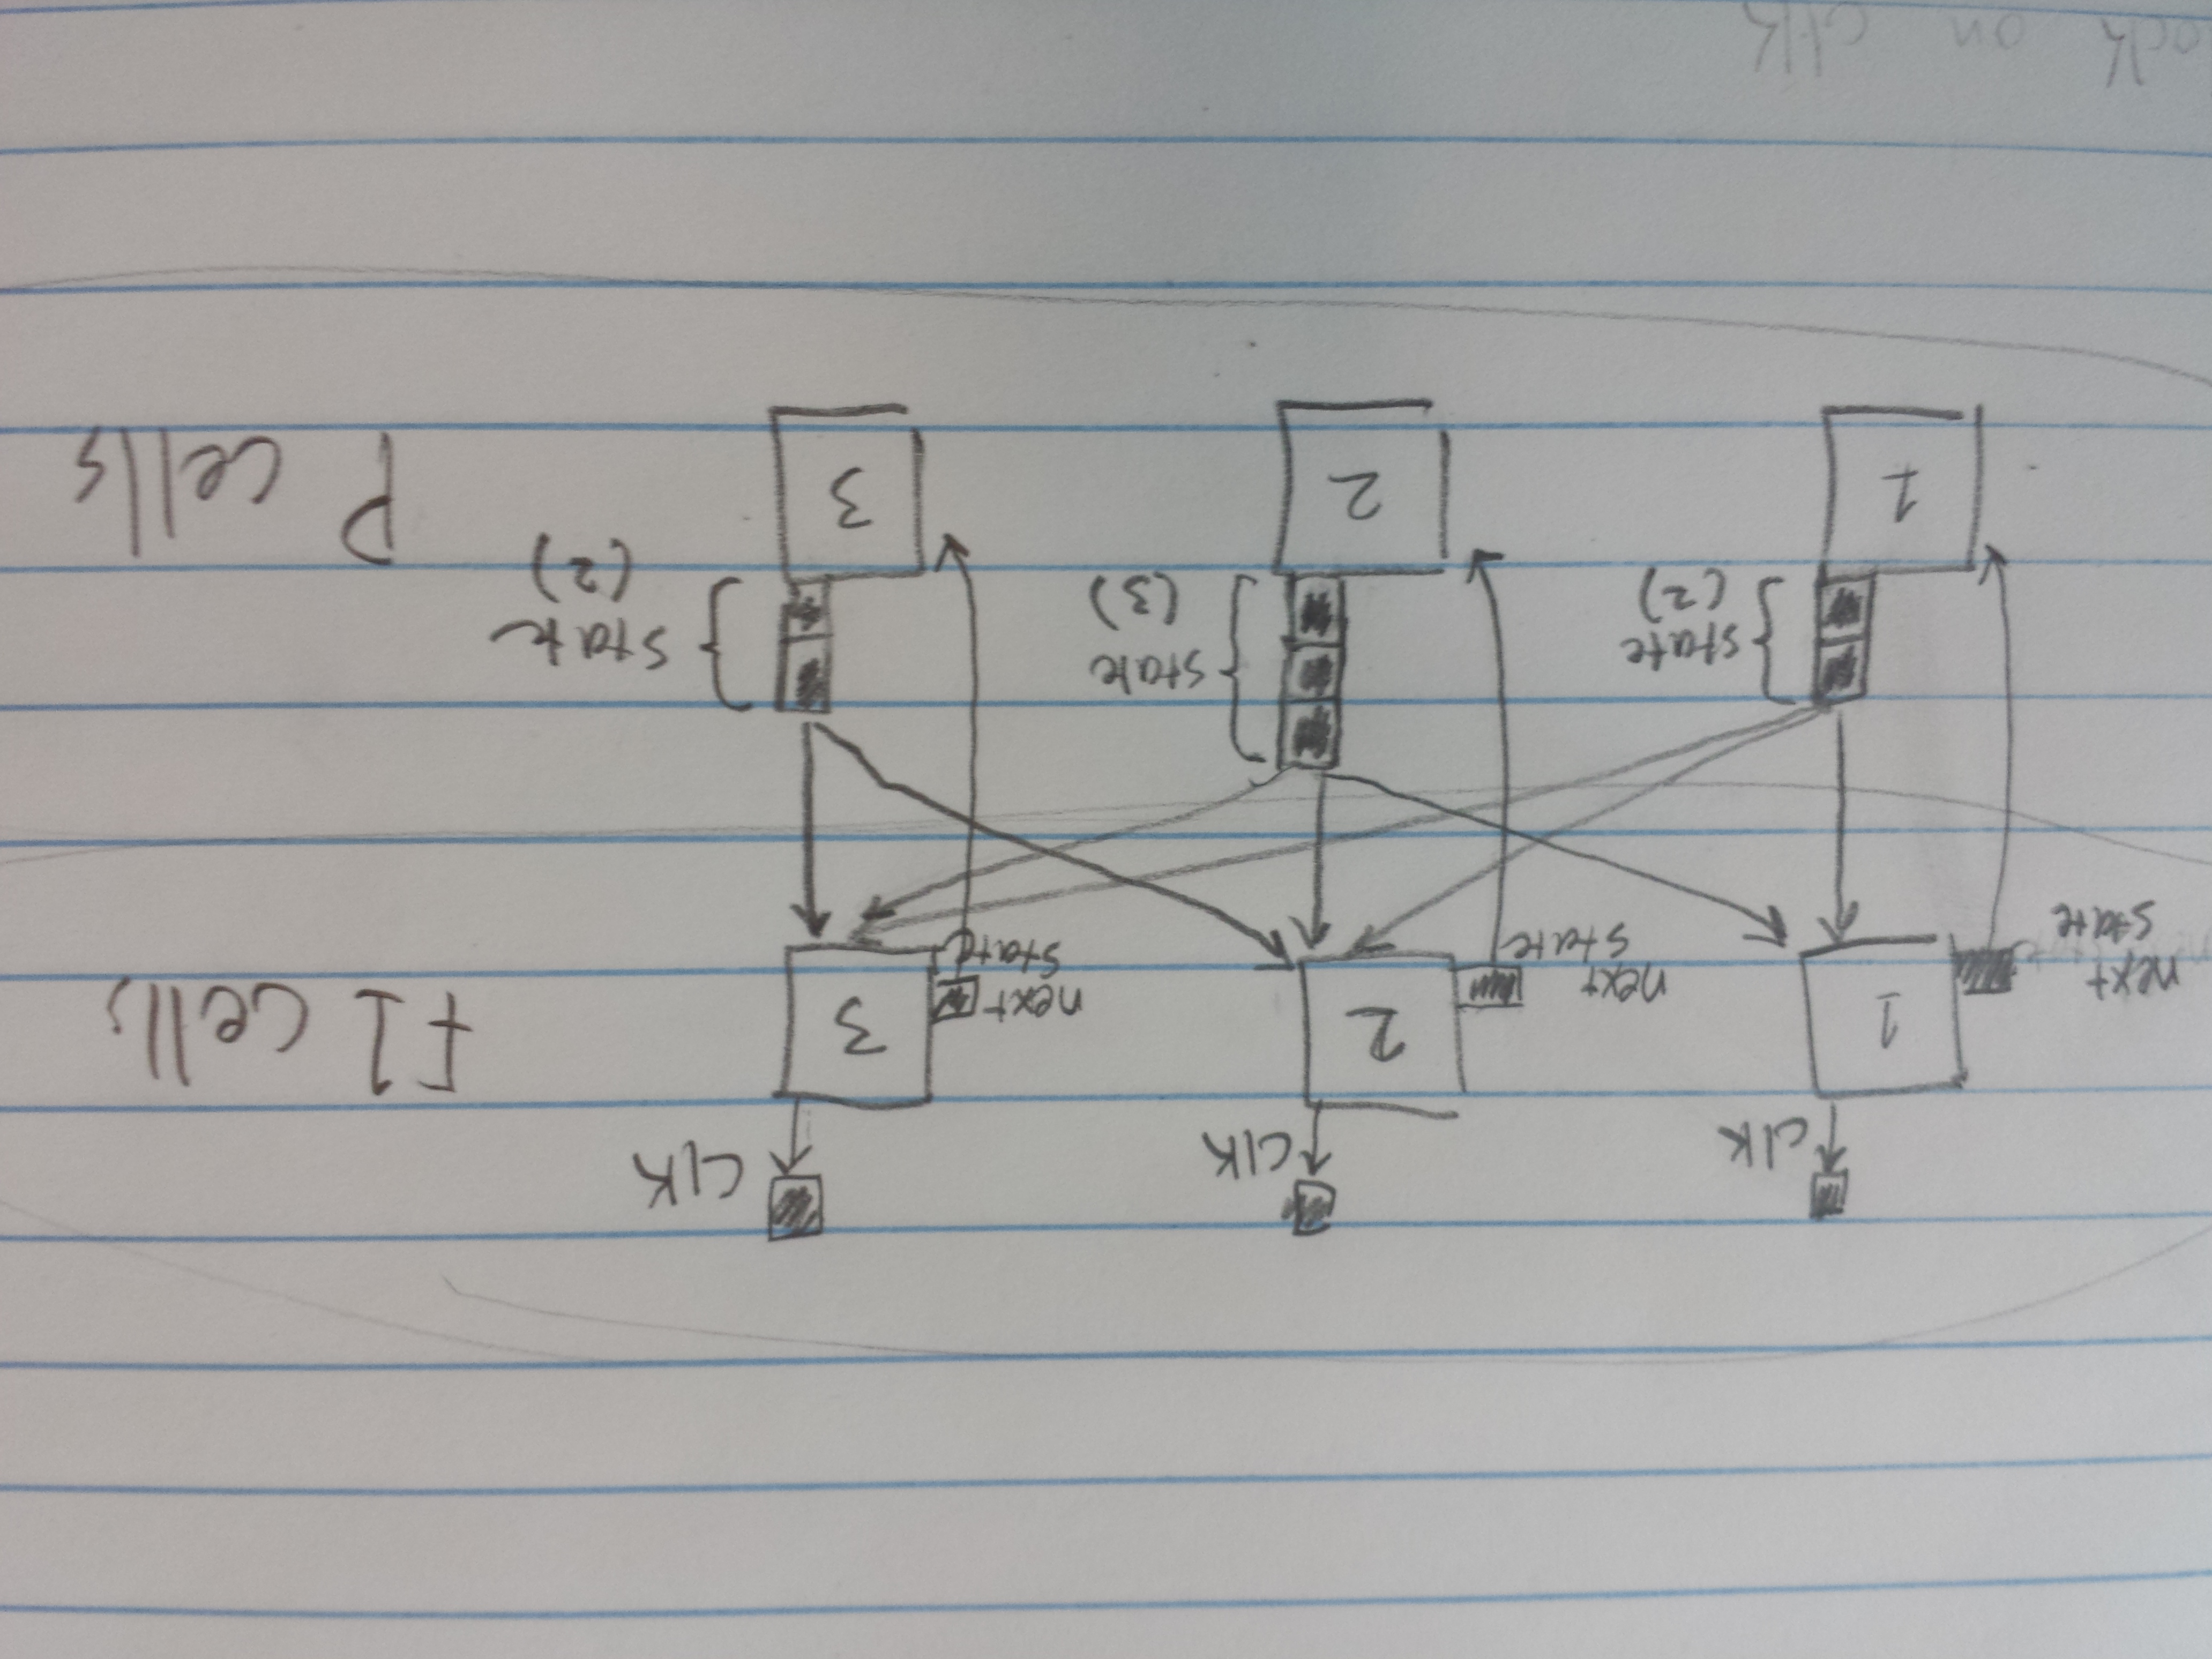 clk
clk
clk
1
2
3
F1 cells
next
state
next
state
next
state
state
(2)
state
(3)
state
(2)
1
2
3
P cells
lock on clk